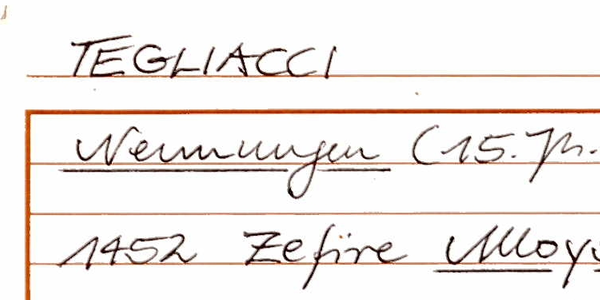 TEGLIACCI
Nennungen (15. Jh.
1452 Zefire